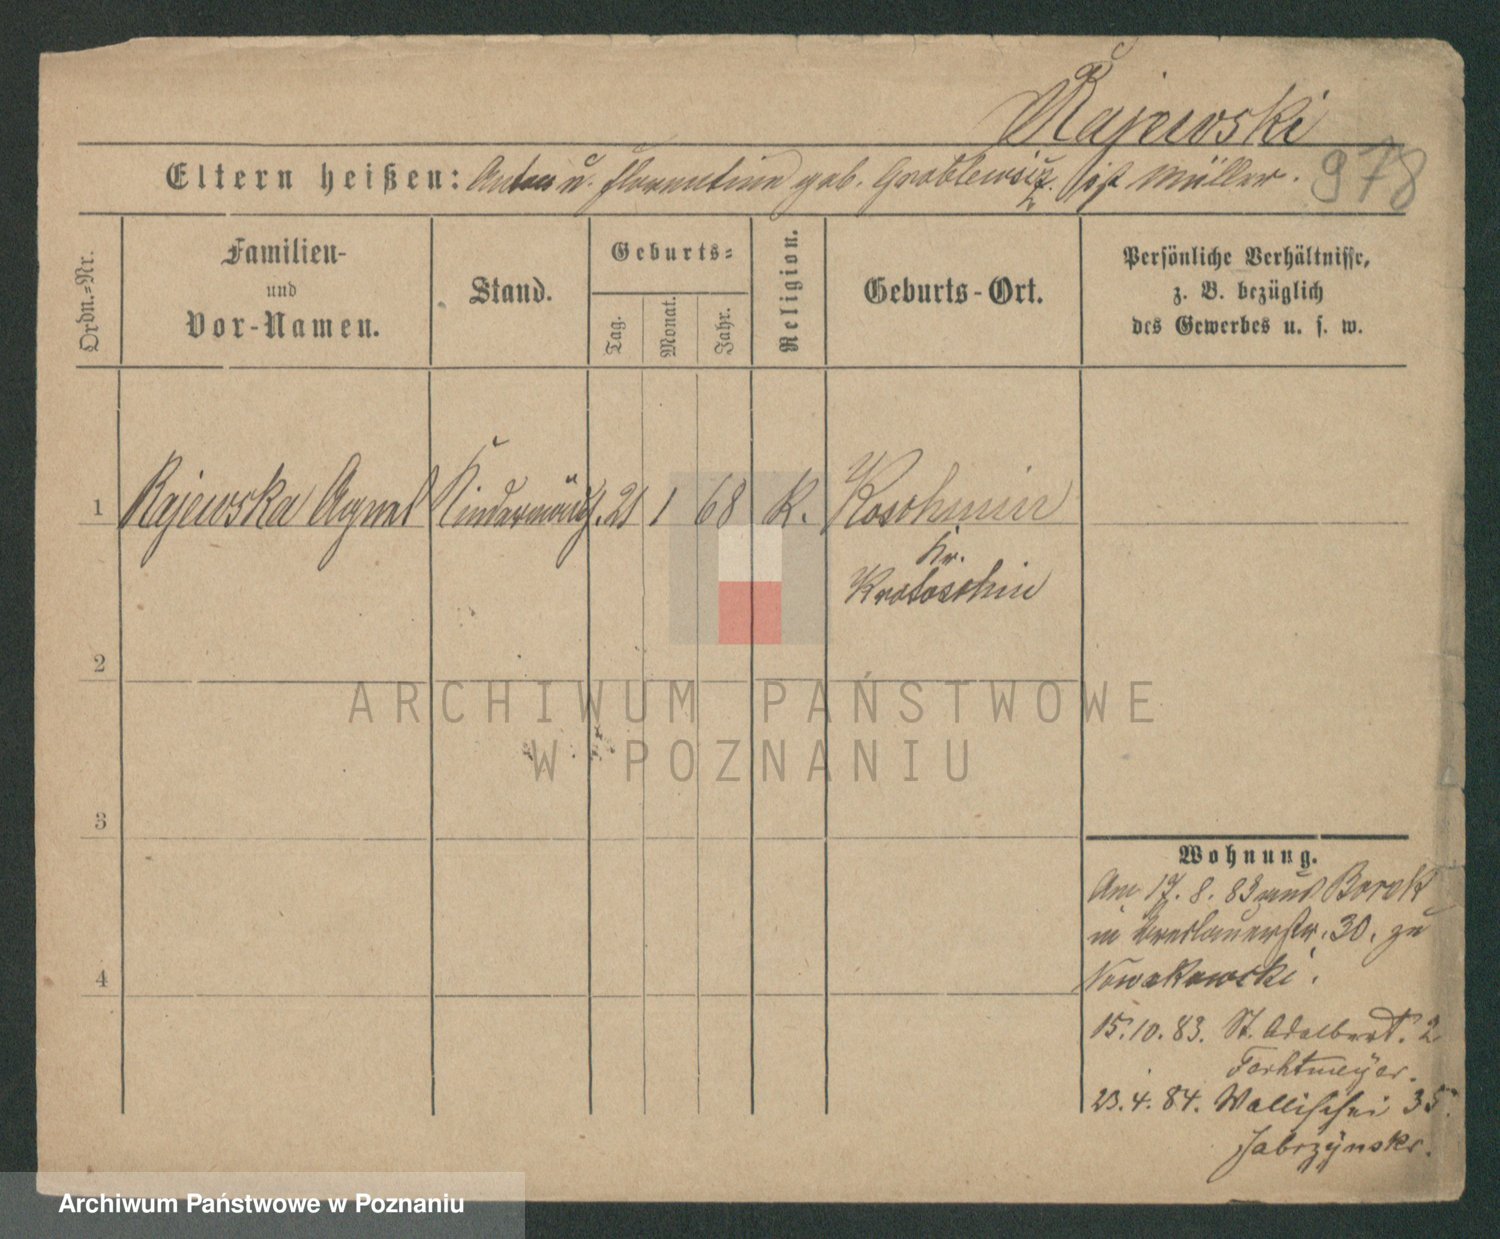 Rajewski
Eltern heißen: Anton u. Florentine geb. ist Müller.
978
Ordn.-Nr.
Familien-
und
Vor-Namen.
Stand.
Geburts-
Tag.
Monat.
Jahr.
Religion.
Geburts-Ort.
Persönliche Verhältnisse,
z. B. bezüglich
des Gewerbes u. s. w.
1 Rajewska Agnes Kindermädch. 21 1 68 K. Koschmin
Kr.
Krotoschin
2
3
4
Wohnung.
Am 17. 8. 83 aus Borek
in Breslauerstr. 30. zu
Nowakowski.
15. 10. 83. St. Adalbert. 2
23. 4. 84. Wallischei 35.
ARCHIWUM PAŃSTWOWE
W POZNANIU
Archiwum Państwowe w Poznaniu